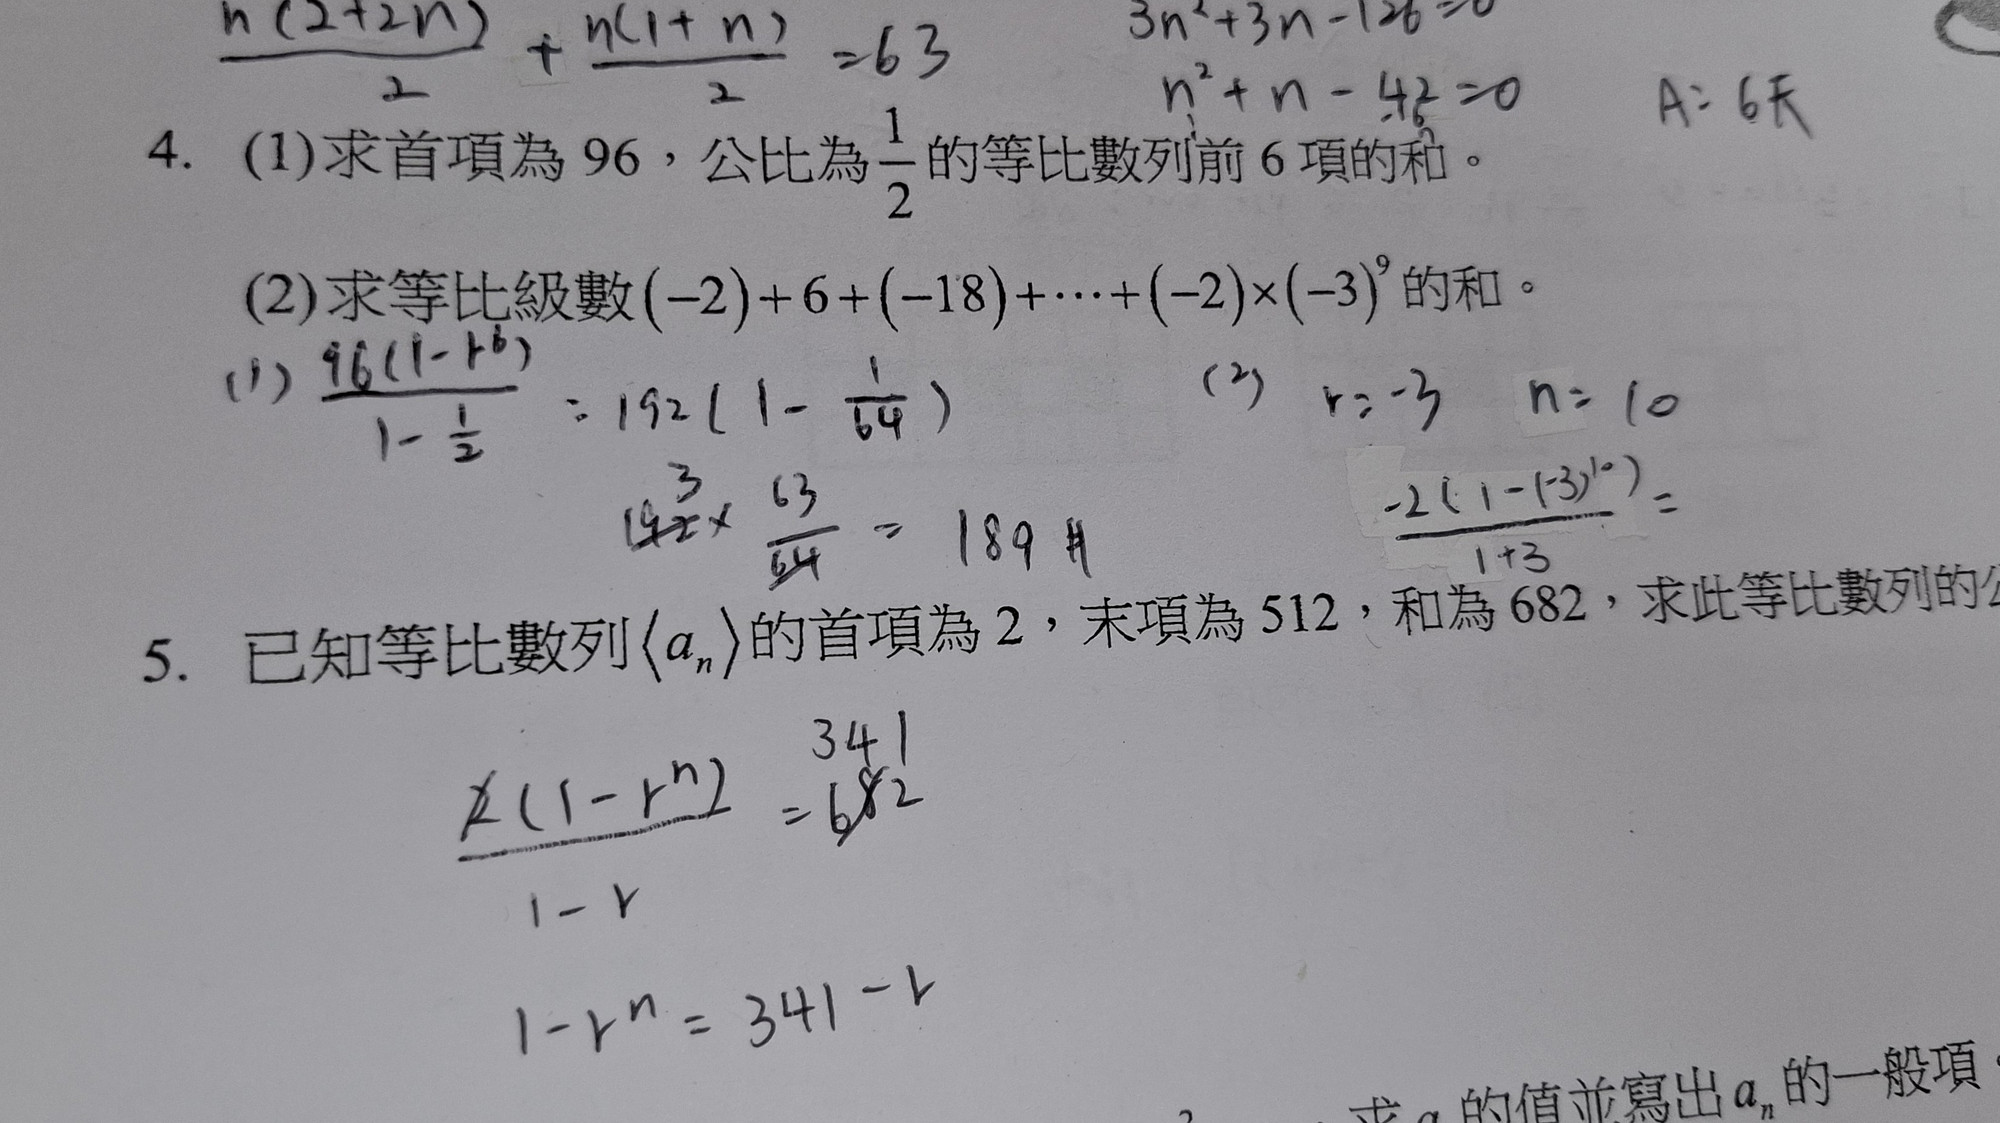 n(2+2n)/2 + n(1+n)/2 =63
3n²+3n-126=0
n²+n-42=0
A: 6天
4. (1)求首項為 96，公比為 1/2 的等比數列前 6 項的和。
(2)求等比級數(−2)+6+(−18)+⋯+(−2)×(−3)⁹ 的和。
(1) 96(1-r⁶)/(1-1/2) = 192(1-1/64)
192 3 × 63/64 = 189 #
(2) r=-3 n=10
-2(1-(-3)¹⁰)/(1+3) =
5. 已知等比數列⟨aₙ⟩的首項為 2，末項為 512，和為 682，求此等比數列的公
341
2(1-rⁿ)/(1-r) =682
1-rⁿ = 341-r
求 a 的值並寫出 aₙ 的一般項。